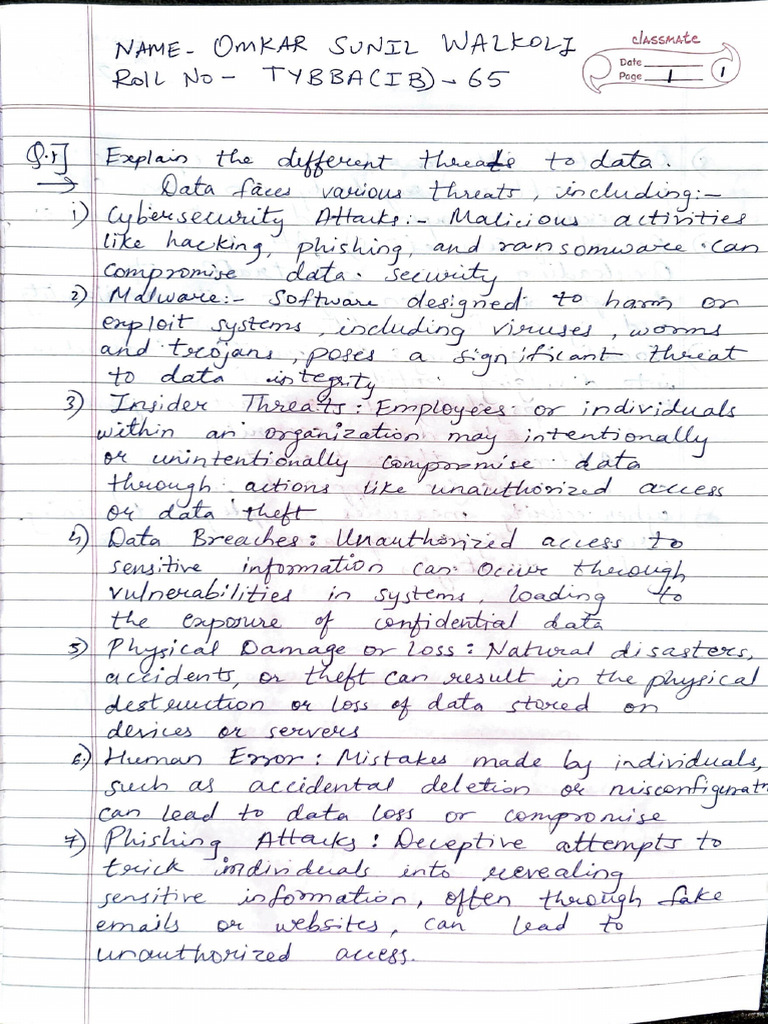 NAME - OMKAR SUNIL WALKOLI
classmate
Date
Page 1 1
ROLL NO - TYBBA(IB) - 65
Q.1] Explain the different threats to data.
→ Data faces various threats, including:-
1) Cybersecurity Attacks:- Malicious activities
like hacking, phishing, and ransomware can
compromise data. security
2) Malware:- Software designed to harm or
exploit systems, including viruses, worms
and trojans, poses a significant threat
to data integrity
3) Insider Threats: Employees or individuals
within an organization may intentionally
or unintentionally compromise data
through actions like unauthorized access
or data theft
4) Data Breaches: Unauthorized access to
sensitive information can occur through
vulnerabilities in systems, loading to
the exposure of confidential data
5) Physical Damage or Loss: Natural disasters,
accidents, or theft can result in the physical
destruction or loss of data stored on
devices or servers
6.) Human Error: Mistakes made by individuals,
such as accidental deletion or misconfigurat
can lead to data loss or compromise
7) Phishing Attacks: Deceptive attempts to
trick individuals into revealing
sensitive information, often through fake
emails or websites, can lead to
unauthorized access.